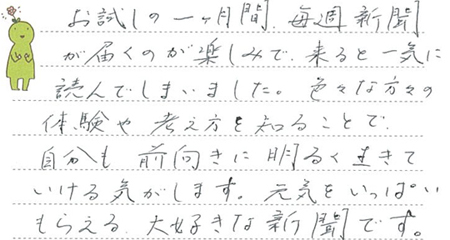 お試しの一ヶ月間、毎週新聞
が届くのが楽しみで、来ると一気に
読んでしまいました。色々な方々の
体験や考え方を知ることで、
自分も前向きに明るく生きて
いける気がします。元気をいっぱい
もらえる、大好きな新聞です。